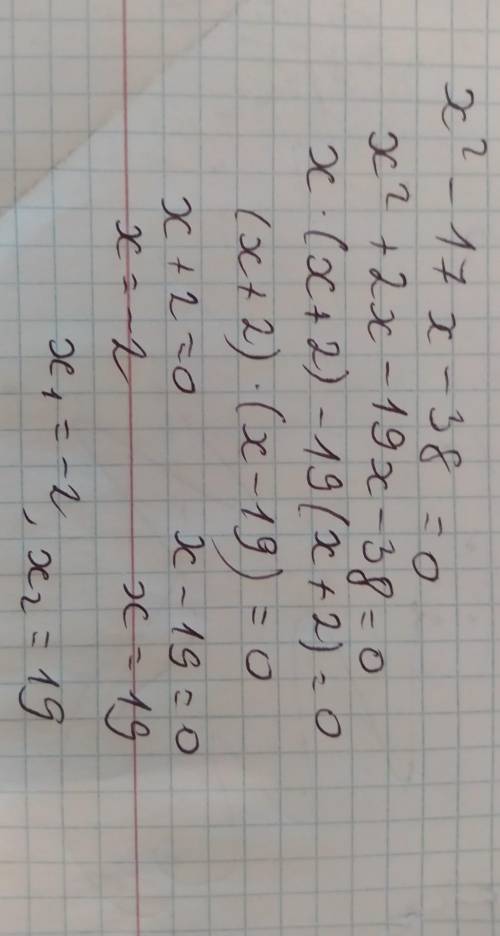 x² - 17x - 38 = 0
x² + 2x - 19x - 38 = 0
x · (x + 2) - 19(x + 2) = 0
(x + 2) · (x - 19) = 0
x + 2 = 0 x - 19 = 0
x = -2 x = 19
x₁ = -2, x₂ = 19